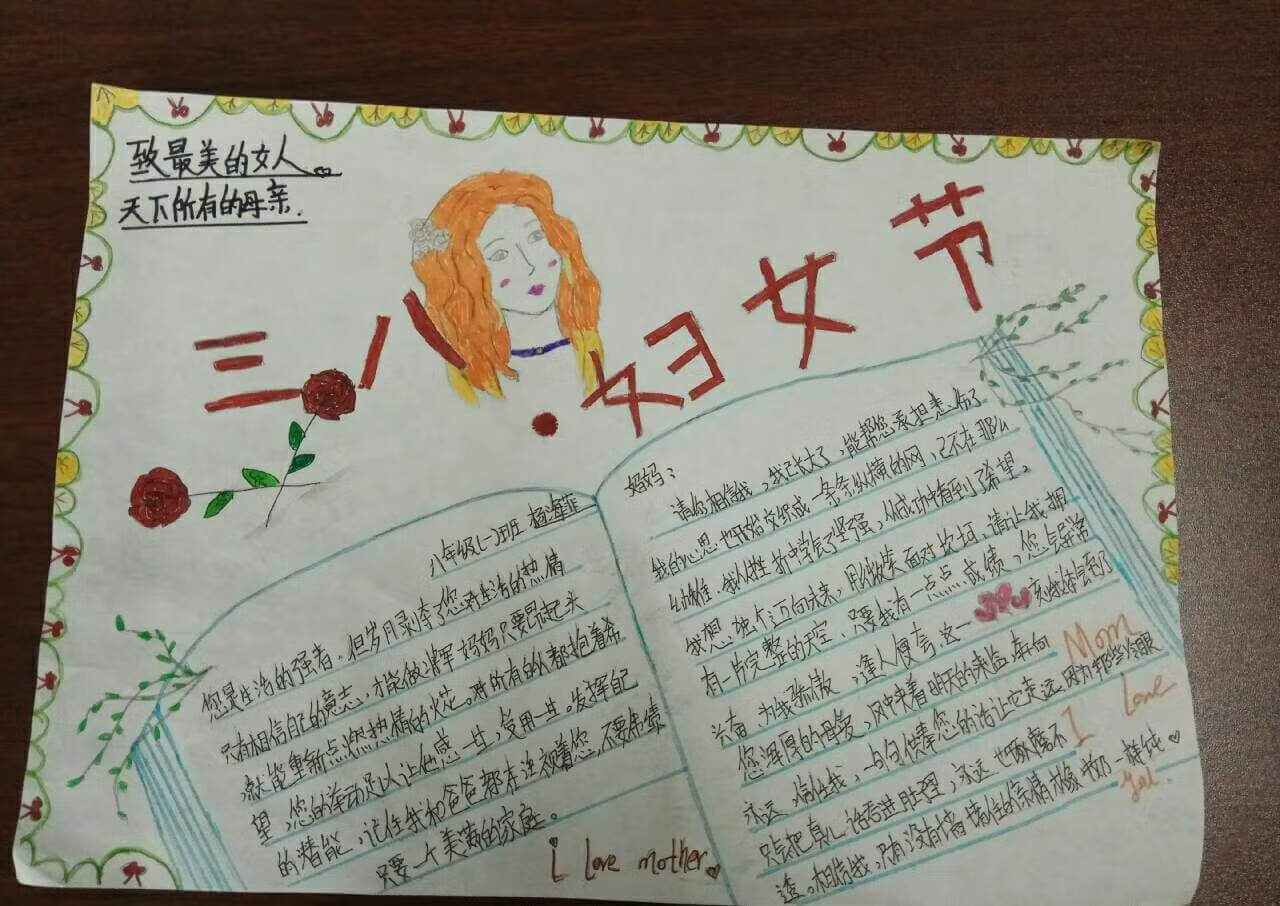 致最美的女人
天下所有的母亲.
三八·妇女节
八年级(一)班 杨海菲
您是生活的强者,但岁月剥夺了您对生活的热情
只有相信自己的意志,才能做得辉 妈妈只要昂起头
就能重新点燃热情的火花。对所有的人都抱着希
望,您的举动足以让他感一生,受用一生。发挥自己
的潜能,记住我和爸爸都在注视着您,不要成绩
只要一个美满的家庭。
I love mother
妈妈:
请你相信我,我已长大了,能帮您承担悲伤了
我的心思也开始交织成一条条纵横的网,已不在那么
幼稚.我从挫折中学会了坚强,从成功中看到了希望。
我想:独个迈向未来,用微笑面对坎坷,请让我拥
有一片完整的天空,只要我有一点点成绩,您会异常
兴奋,为我骄傲,逢人便夸,这一刻我体会到了
您浑厚的母爱,风中夹着明天的来临,奔向
永远,信任我,一句句伴奉您的话让它走远,因为那些冷眼
只会把真心话吞进肚里,永远也琢磨不
透。相信我,只有没有墙堵住的亲情才像奶一样纯
Mom
I Love
you.